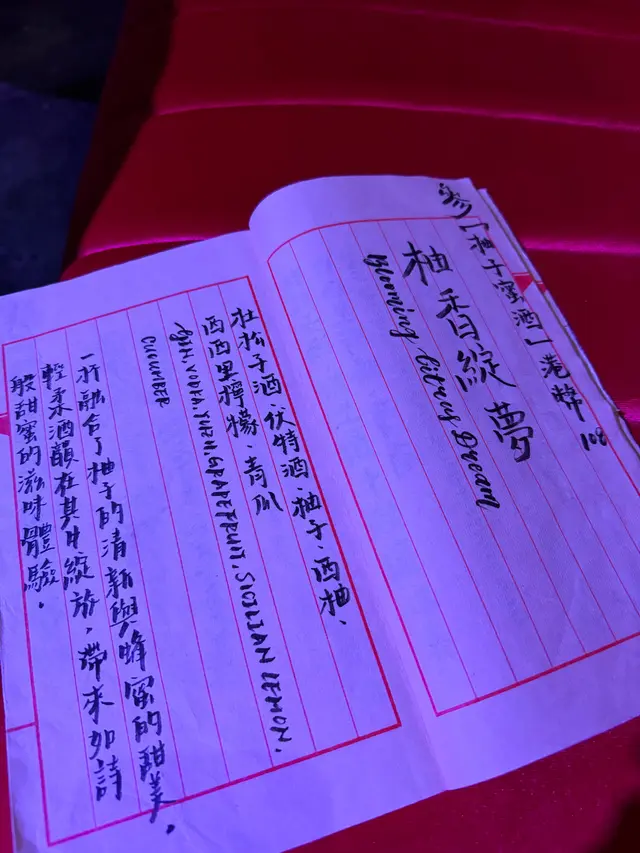 參「柚子蜜酒」港幣 108
柚香綻夢
Blooming Citrus Dream
杜松子酒、伏特酒、柚子、西柚、
西西里檸檬、青瓜
GIN. VODKA. YUZU. GRAPEFRUIT. SICILIAN LEMON.
CUCUMBER
一杯融合了柚子的清新與蜂蜜的甜美，
輕柔酒韻在其中綻放，帶來如詩
般甜蜜的滋味體驗。